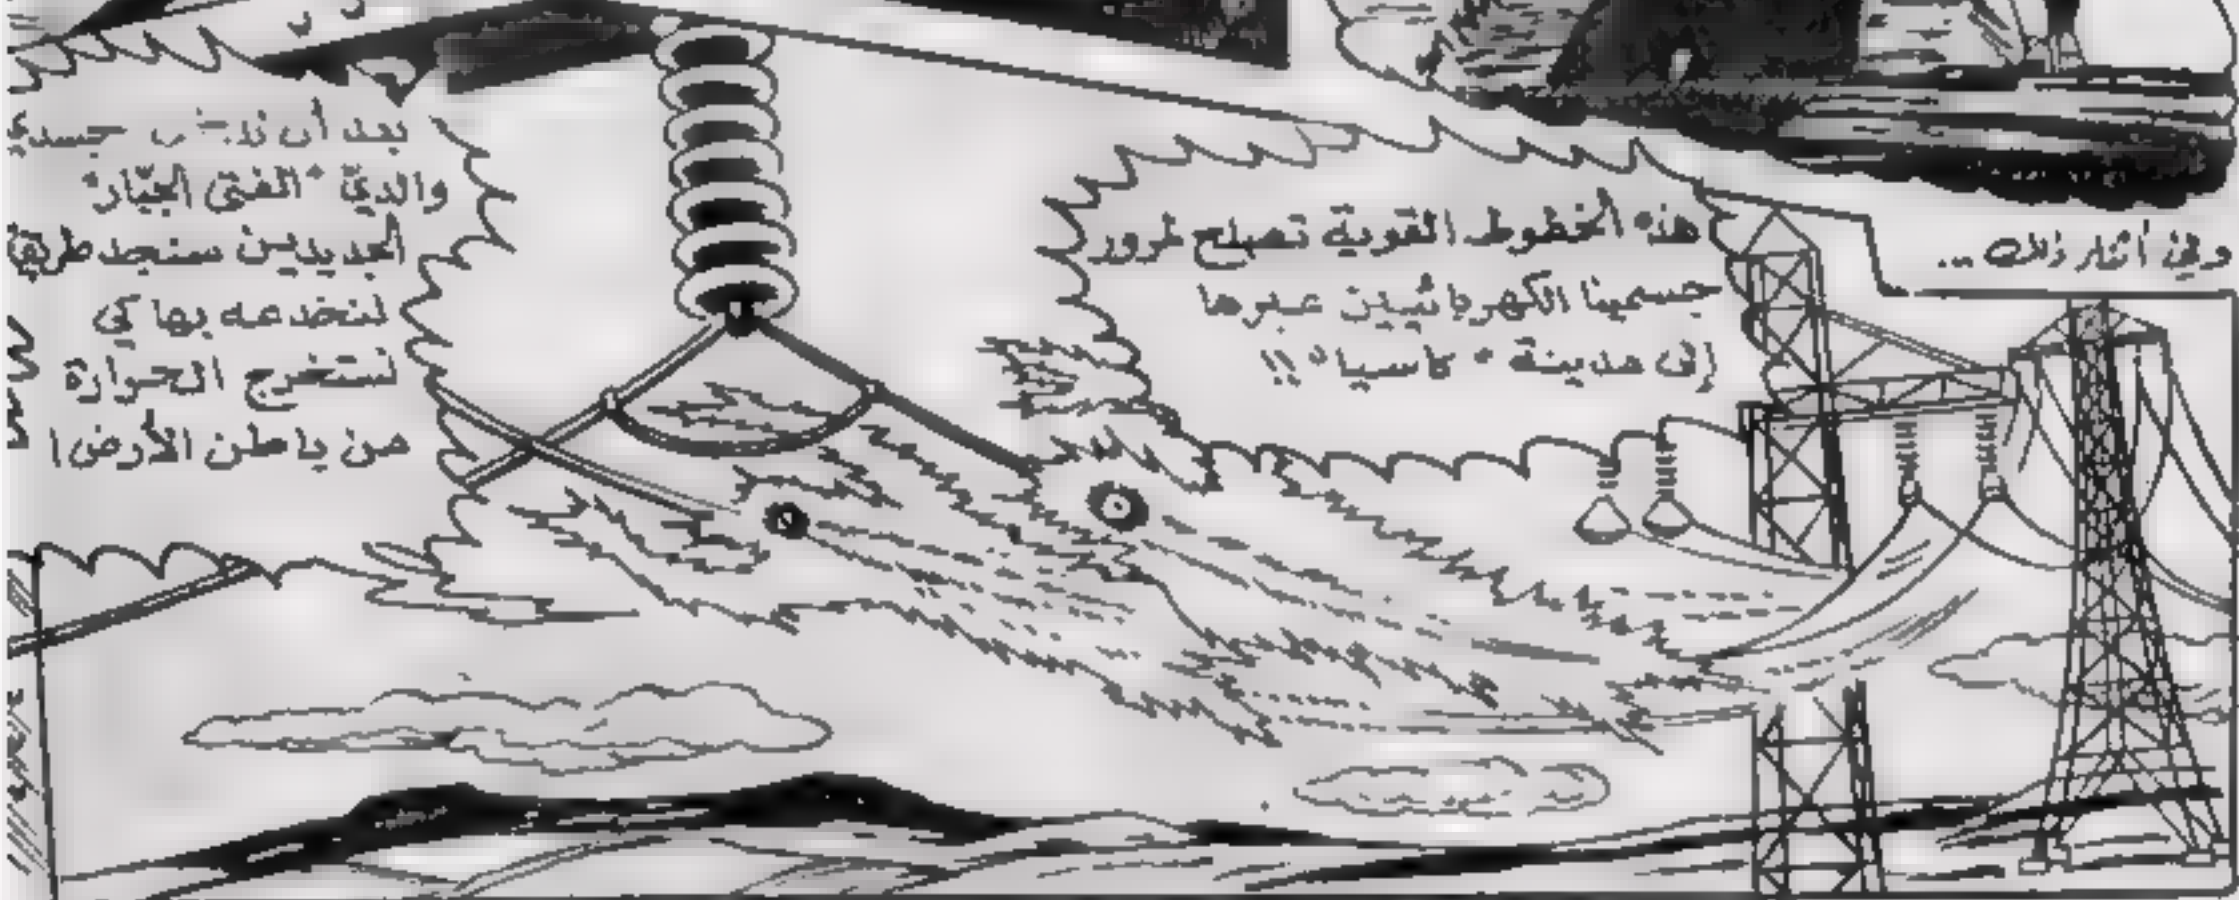 وفي أثناء ذلك ...
هذه الخطوط القوية تصلح لمرور
جسمينا الكهربائيين عبرها
إلى مدينة "كاسيا" !!
بعد أن جسدي
والديّ "الفتى الجبّار"
الجديدين سنجد طريقة
لنخدعه بها كي
نستخرج الحرارة
من باطن الأرض !